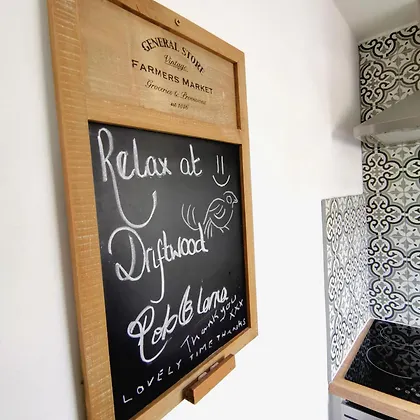 GENERAL STORE
Vintage
FARMERS MARKET
Groceries & Provisions
est. 1856
Relax at
Driftwood
Lorna
THANK YOU
XXX
LOVELY TIME THANKS